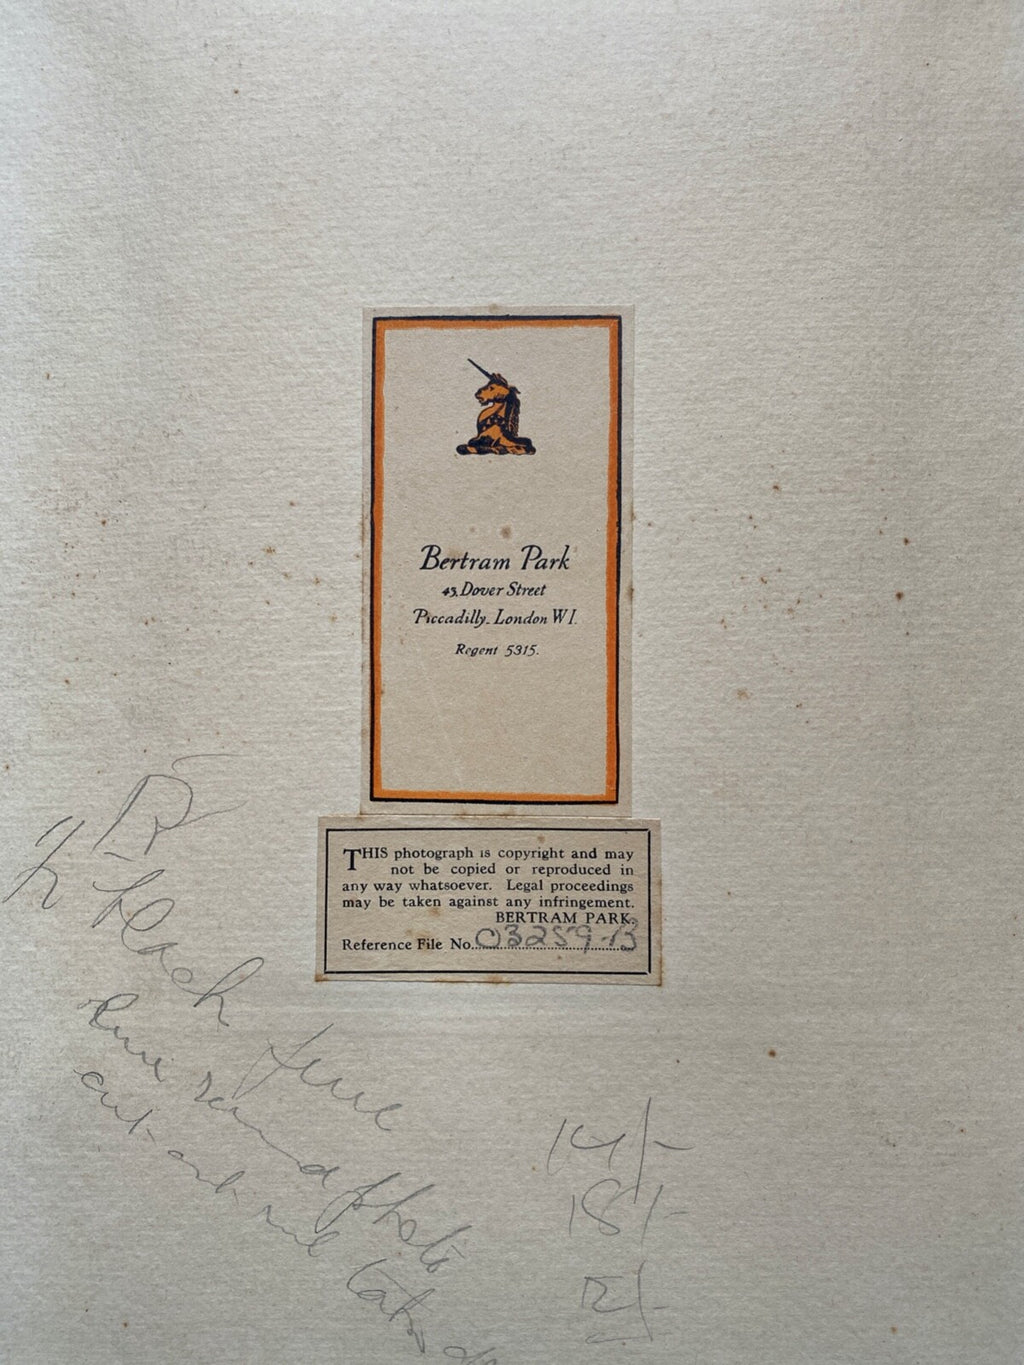 Bertram Park
43, Dover Street
Piccadilly. London W1.
Regent 5315.
THIS photograph is copyright and may
not be copied or reproduced in
any way whatsoever. Legal proceedings
may be taken against any infringement.
BERTRAM PARK.
Reference File No. 03259-B
black
line round photo
14/-
18/-
12/-